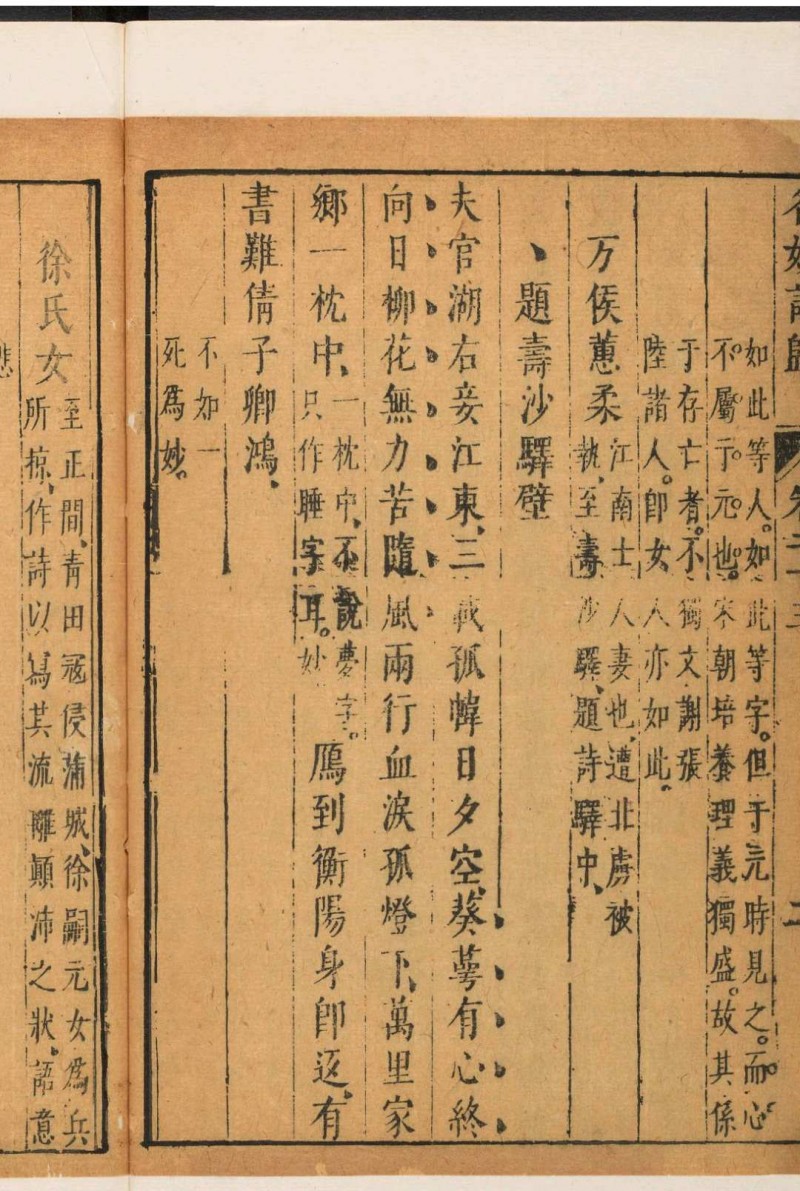 如此等人。如此等字。但于元時見之。而心
不屬于元也。宋朝培養理義獨盛。故其係
于存亡者。不獨文謝張
陸諸人。卽女人亦如此。
万俟蕙柔
江南士人妻也、遭北虜被
執、至壽沙驛、題詩驛中、
題壽沙驛壁
夫官湖右妾江東、三載孤幃日夕空、葵萼有心終
向日柳花無力苦隨風兩行血淚孤燈下、萬里家
鄉一枕中、
一枕中、不說夢字。
只作睡字耳。妙
鴈到衡陽身卽返、有
書難倩子卿鴻、
不如一
死爲妙。
徐氏女
至正間、青田寇侵蒲城、徐嗣元女爲兵
所掠、作詩以寫其流離顛沛之狀、語意